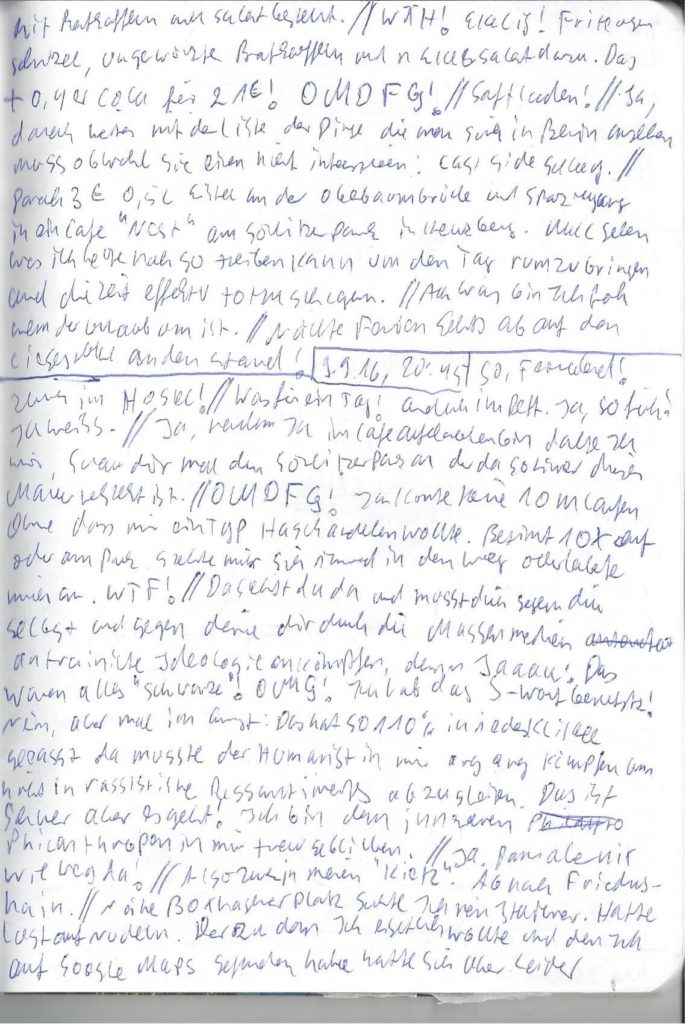 mit Bratkartoffeln und Salat bestellt. // WTH! Eklig!
Schnitzel, ungewürzte Bratkartoffeln und n Salat dazu. Das
+ 0,4er Cola für 21€! OMDFG! // Saftladen! // Ja,
danach weiter mit der Liste der Dinge die man sich in Berlin ansehen
muss obwohl sie einen nicht interessieren: East Side Gallery. //
3€ 0,5L Eistee an der Oberbaumbrücke und Spaziergang
in ein Cafe "Nest" am Görlitzer Park in Kreuzberg. Mal sehen
was ich heute noch so treiben kann um den Tag rumzubringen
und die Zeit effektiv // Ach was bin ich froh
wenn der Urlaub um ist. // Nächste Ferien gehts ab auf den
Liegestuhl an den Strand!
9.9.16, 20: So, Feierabend!
Zurück im Hostel! // Was für ein Tag! im Bett. Ja, so früh!
Ich weiss. // Ja, nachdem ich im Cafe bin dachte ich
mir, schau dir mal den Görlitzer Park an der da so hinter dieser
Mauer ist. // OMDFG! Ich konnte keine 10m laufen
ohne dass mir ein Typ Hasch andrehen wollte. Bestimmt 10x auf
oder am Park stellte mir sich jemand in den Weg oder laberte
mich an. WTF! // Da gehst du da und musst dich gegen dich
selbst und gegen deine dir durch die Massenmedien
antrainierte Ideologie ankämpfen, denn Jaaaa! Das
waren alles "Schwarze"! OMG! Ich hab das S-Wort benutzt!
Nein, aber mal im Ernst: Das hat so 110% in jedes Klischee
gepasst da musste der Humanist in mir arg arg kämpfen um
nicht in rassistische Ressentiments abzugleiten. Das ist
schwer aber es geht! Ich bin dem inneren
Philanthropen in mir treu geblieben. // Ja,
wie weg da! // Also zurück in meinen "Kietz". Ab nach Friedrichs-
hain. // Nähe Boxhagner Platz suchte ich nen Italiener. Hatte
Lust auf Nudeln. Der zu dem ich eigentlich wollte und den ich
auf Google Maps gefunden habe hatte sich aber leider